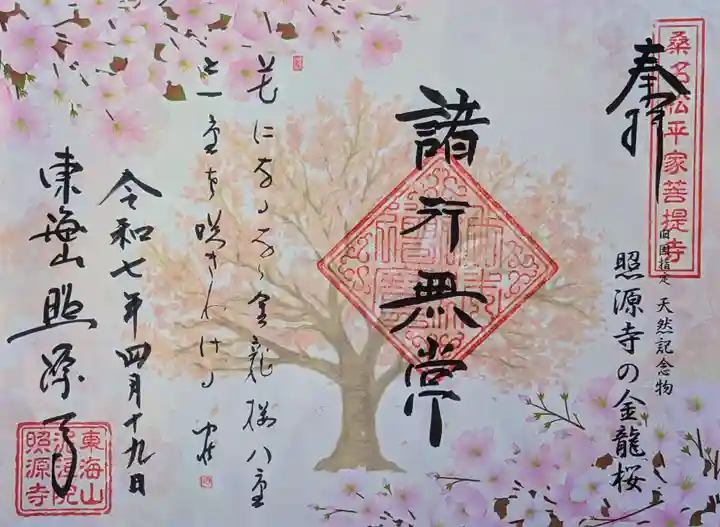 桑名松平家菩提寺
奉拝
旧国指定 天然記念物
照源寺の金龍桜
諸行無常
花になるなら金龍桜八重
と一重を咲きわける
令和七年四月十九日
東海山照源寺
東海山
泥洹院
照源寺